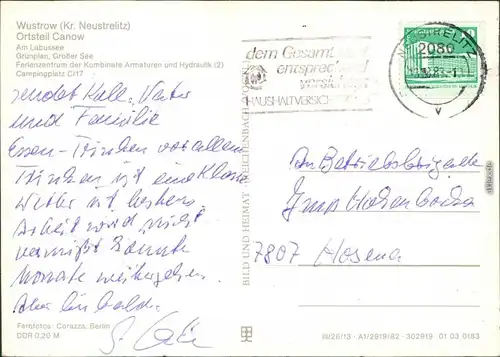 Wustrow (Kr. Neustrelitz)
Ortsteil Canow
Am Labussee
Grünplan, Großer See
Ferienzentrum der Kombinate Armaturen und Hydraulik (2)
Campingplatz C/17
sendet Kall, Vater
und Familie
Essen - Trinken vor allem
Trinken ist eine Klasse
Wetter ist bestens
Arbeit wird nicht
vermißt
Monate weitergehen.
Aber bis bald.
Farbfotos: Corazza, Berlin
DDR 0,20 M
BILD UND HEIMAT REICHENBACH
dem Gesamt
entsprechend
versichert
HAUSHALTVERSICH
NEUSTRELITZ
2080
An Betriebsbrigade
7807 Hosena
III/26/13 · A1/2819/82 · 302919 01 03 0183